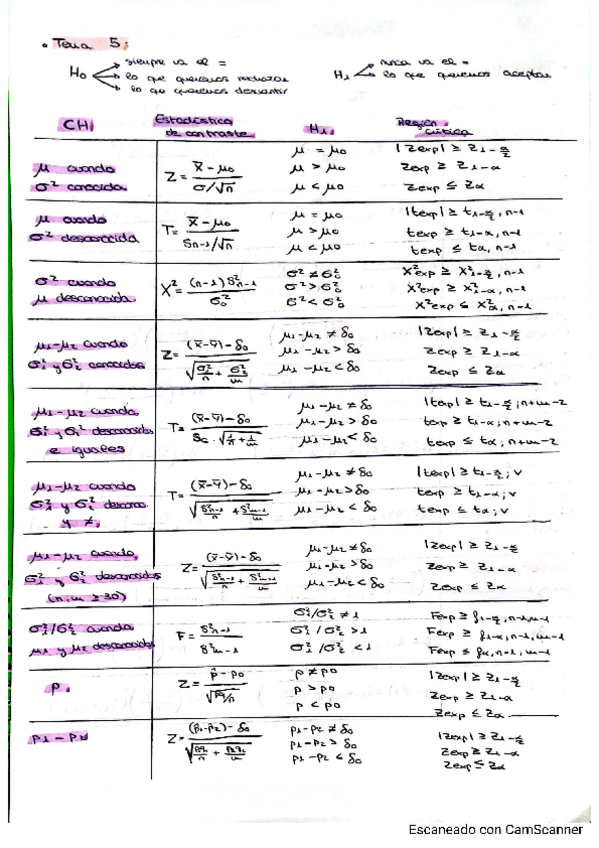 • Tema 5:
H₀ → siempre va el =
→ lo que queremos rechazar
→ lo que queremos desmentir
H₁ → nunca va el =
→ lo que queremos aceptar
CH. Estadístico de contraste H₁. Región crítica
μ cuando σ² conocida Z = (x̄ - μ₀) / (σ/√n)
μ = μ₀ |Zexp| ≥ Z₁₋α/₂
μ > μ₀ Zexp ≥ Z₁₋α
μ < μ₀ Zexp ≤ Zα
μ cuando σ² desconocida T = (x̄ - μ₀) / (Sn-1/√n)
μ = μ₀ |texp| ≥ t₁₋α/₂, n-1
μ > μ₀ texp ≥ t₁₋α, n-1
μ < μ₀ texp ≤ tα, n-1
σ² cuando μ desconocida X² = (n-1) S²n-1 / σ₀²
σ² ≠ σ₀² X²exp ≥ X²₁₋α/₂, n-1
σ² > σ₀² X²exp ≥ X²₁₋α, n-1
σ² < σ₀² X²exp ≤ X²α, n-1
μ₁-μ₂ cuando σ₁² y σ₂² conocidas Z = ((x̄-ȳ) - δ₀) / √(σ₁²/n + σ₂²/m)
μ₁-μ₂ ≠ δ₀ |Zexp| ≥ Z₁₋α/₂
μ₁-μ₂ > δ₀ Zexp ≥ Z₁₋α
μ₁-μ₂ < δ₀ Zexp ≤ Zα
μ₁-μ₂ cuando σ₁² y σ₂² desconocidas e iguales T = ((x̄-ȳ) - δ₀) / (Sc · √(1/n + 1/m))
μ₁-μ₂ ≠ δ₀ |texp| ≥ t₁₋α/₂; n+m-2
μ₁-μ₂ > δ₀ texp ≥ t₁₋α; n+m-2
μ₁-μ₂ < δ₀ texp ≤ tα; n+m-2
μ₁-μ₂ cuando σ₁² y σ₂² descono. y ≠. T = ((x̄-ȳ) - δ₀) / √(S²n-1/n + S²m-1/m)
μ₁-μ₂ ≠ δ₀ |texp| ≥ t₁₋α/₂; v
μ₁-μ₂ > δ₀ texp ≥ t₁₋α; v
μ₁-μ₂ < δ₀ texp ≤ tα; v
μ₁-μ₂ cuando σ₁² y σ₂² desconocidas (n, m ≥ 30) Z = ((x̄-ȳ) - δ₀) / √(S²n-1/n + S²m-1/m)
μ₁-μ₂ ≠ δ₀ |Zexp| ≥ Z₁₋α/₂
μ₁-μ₂ > δ₀ Zexp ≥ Z₁₋α
μ₁-μ₂ < δ₀ Zexp ≤ Zα
σ₁²/σ₂² cuando μ₁ y μ₂ desconocidos F = S²n-1 / S²m-1
σ₁²/σ₂² ≠ 1 Fexp ≥ f₁₋α/₂, n-1, m-1
σ₁²/σ₂² > 1 Fexp ≥ f₁₋α, n-1, m-1
σ₁²/σ₂² < 1 Fexp ≤ fα, n-1, m-1
p. Z = (p̂ - p₀) / √(pq/n)
p ≠ p₀ |Zexp| ≥ Z₁₋α/₂
p > p₀ Zexp ≥ Z₁₋α
p < p₀ Zexp ≤ Zα
p₁-p₂ Z = ((p̂₁-p̂₂) - δ₀) / √(p₁q₁/n + p₂q₂/m)
p₁-p₂ ≠ δ₀ |Zexp| ≥ Z₁₋α/₂
p₁-p₂ > δ₀ Zexp ≥ Z₁₋α
p₁-p₂ < δ₀ Zexp ≤ Zα
Escaneado con CamScanner